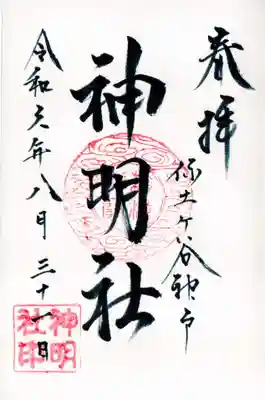 奉拝
保土ヶ谷神戸
神明社
令和元年八月三十一日
神明
社印